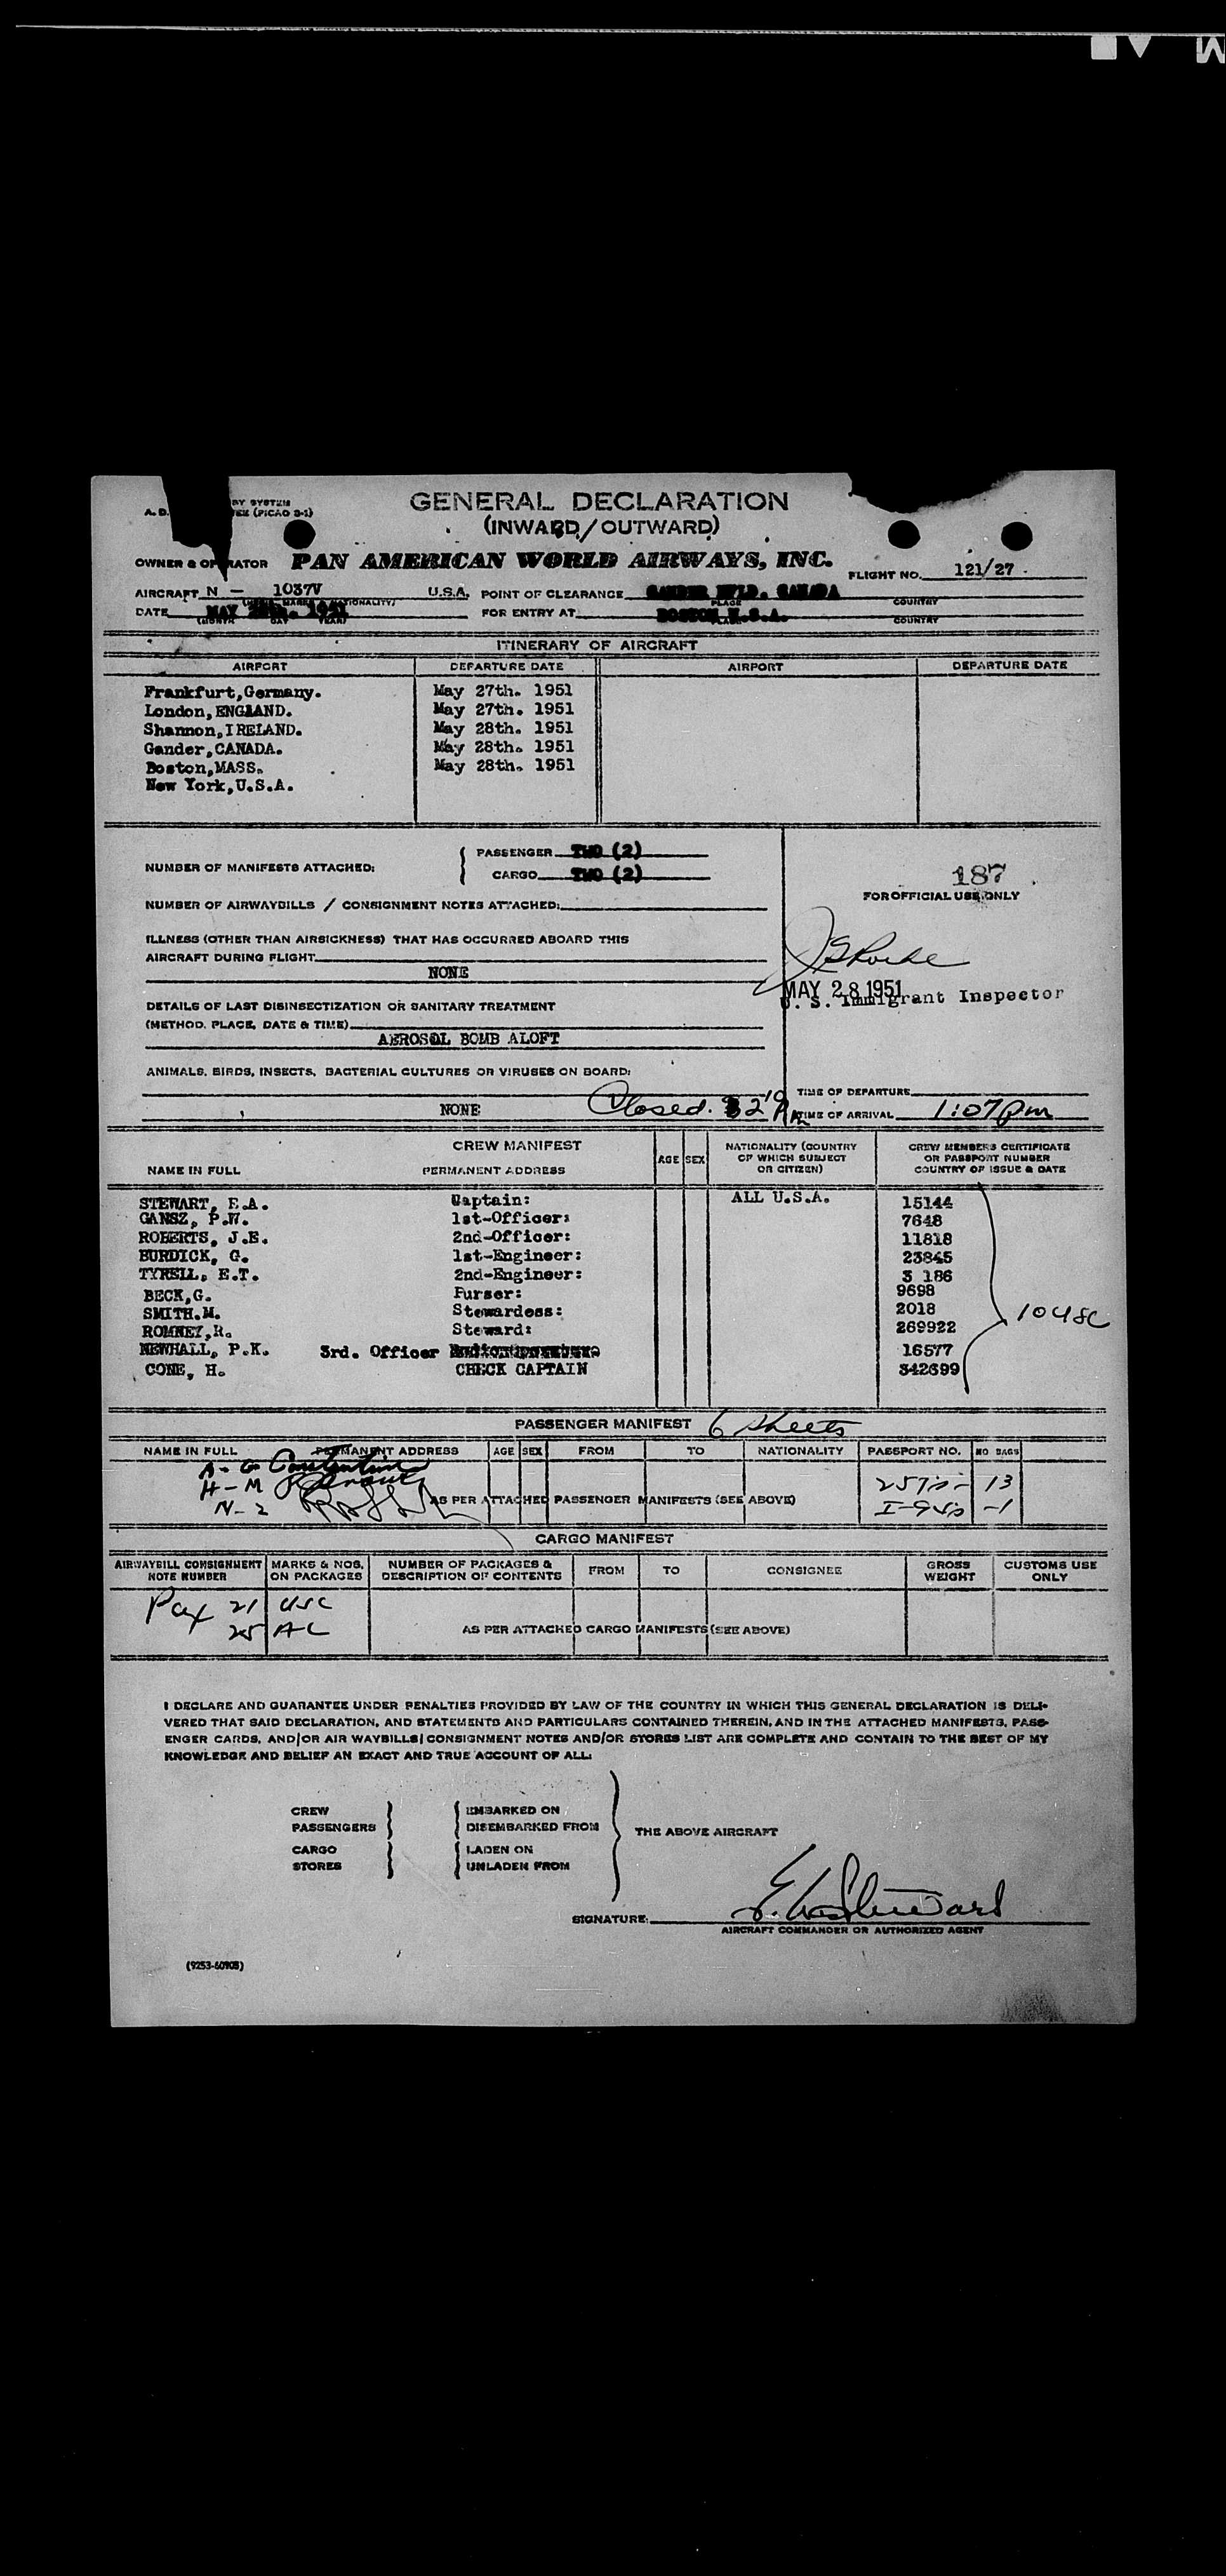 GENERAL DECLARATION
(INWARD/OUTWARD)
OWNER & OPERATOR PAN AMERICAN WORLD AIRWAYS, INC.
FLIGHT NO. 121/27
AIRCRAFT N - 1037V U.S.A. POINT OF CLEARANCE GANDER NFLD. CANADA
DATE MAY 28th. 1951 FOR ENTRY AT BOSTON U.S.A.
ITINERARY OF AIRCRAFT
AIRPORT DEPARTURE DATE AIRPORT DEPARTURE DATE
Frankfurt,Germany. May 27th. 1951
London,ENGLAND. May 27th. 1951
Shannon,IRELAND. May 28th. 1951
Gander,CANADA. May 28th. 1951
Boston,MASS. May 28th. 1951
New York,U.S.A.
NUMBER OF MANIFESTS ATTACHED:
PASSENGER TWO (2)
CARGO TWO (2)
187
FOR OFFICIAL USE ONLY
NUMBER OF AIRWAYBILLS / CONSIGNMENT NOTES ATTACHED:
ILLNESS (OTHER THAN AIRSICKNESS) THAT HAS OCCURRED ABOARD THIS
AIRCRAFT DURING FLIGHT
NONE
MAY 28 1951
U. S. Immigrant Inspector
DETAILS OF LAST DISINSECTIZATION OR SANITARY TREATMENT
(METHOD, PLACE, DATE & TIME)
AEROSOL BOMB ALOFT
ANIMALS, BIRDS, INSECTS, BACTERIAL CULTURES OR VIRUSES ON BOARD:
NONE
Closed.
TIME OF DEPARTURE
TIME OF ARRIVAL 1:07 pm
CREW MANIFEST
NAME IN FULL PERMANENT ADDRESS AGE SEX NATIONALITY (COUNTRY OF WHICH SUBJECT OR CITIZEN) CREW MEMBERS CERTIFICATE OR PASSPORT NUMBER COUNTRY OF ISSUE & DATE
STEWART, E.A. Captain: ALL U.S.A. 15144
GANSZ, P.W. 1st-Officer: 7648
ROBERTS, J.E. 2nd-Officer: 11818
BURDICK, G. 1st-Engineer: 23845
TYRELL, E.T. 2nd-Engineer: 3 186
BECK,G. Purser: 9698
SMITH.M. Stewardess: 2018
ROMNEY,R. Steward: 269922
NEWHALL, P.K. 3rd. Officer 16577
CONE, H. CHECK CAPTAIN 342699
10 USC
PASSENGER MANIFEST 6 sheets
NAME IN FULL PERMANENT ADDRESS AGE SEX FROM TO NATIONALITY PASSPORT NO. NO. BAGS
A - G
H - M
N - Z
13
-1
AS PER ATTACHED PASSENGER MANIFESTS (SEE ABOVE)
CARGO MANIFEST
AIRWAYBILL CONSIGNMENT NOTE NUMBER MARKS & NOS. ON PACKAGES NUMBER OF PACKAGES & DESCRIPTION OF CONTENTS FROM TO CONSIGNEE GROSS WEIGHT CUSTOMS USE ONLY
Pax 21 USC
25 AL
AS PER ATTACHED CARGO MANIFESTS (SEE ABOVE)
I DECLARE AND GUARANTEE UNDER PENALTIES PROVIDED BY LAW OF THE COUNTRY IN WHICH THIS GENERAL DECLARATION IS DELI-
VERED THAT SAID DECLARATION, AND STATEMENTS AND PARTICULARS CONTAINED THEREIN, AND IN THE ATTACHED MANIFESTS, PASS-
ENGER CARDS, AND/OR AIR WAYBILLS/CONSIGNMENT NOTES AND/OR STORES LIST ARE COMPLETE AND CONTAIN TO THE BEST OF MY
KNOWLEDGE AND BELIEF AN EXACT AND TRUE ACCOUNT OF ALL:
CREW EMBARKED ON
PASSENGERS DISEMBARKED FROM
THE ABOVE AIRCRAFT
CARGO LADEN ON
STORES UNLADEN FROM
SIGNATURE:
AIRCRAFT COMMANDER OR AUTHORIZED AGENT
(9253-60908)